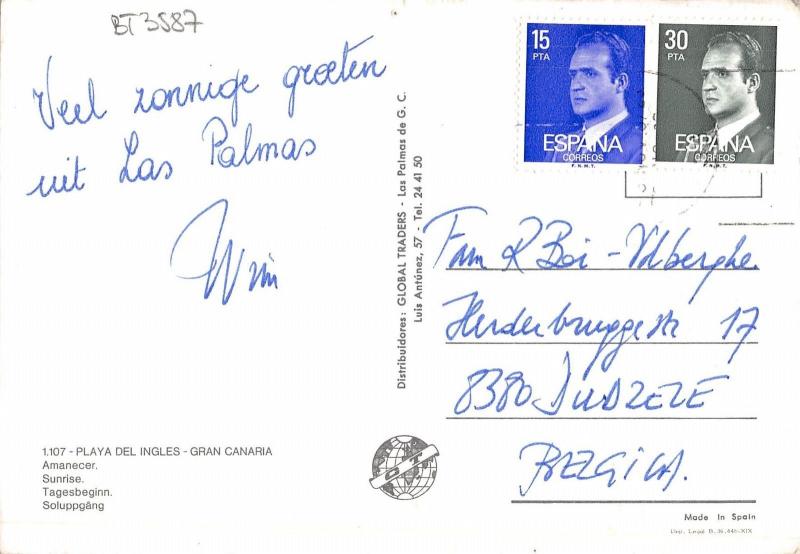 BT3587
Veel zonnige groeten
uit Las Palmas
Wim
1.107 - PLAYA DEL INGLES - GRAN CANARIA
Amanecer.
Sunrise.
Tagesbeginn.
Soluppgäng
Distribuidores: GLOBAL TRADERS - Las Palmas de G. C.
Luis Antúnez, 57 - Tel. 24 41 50
15
PTA
ESPAÑA
CORREOS
F.N.M.T.
30
PTA
ESPAÑA
CORREOS
F.N.M.T.
Fam R Boi -
17
8380 DUDZELE
BELGICA.
Made In Spain